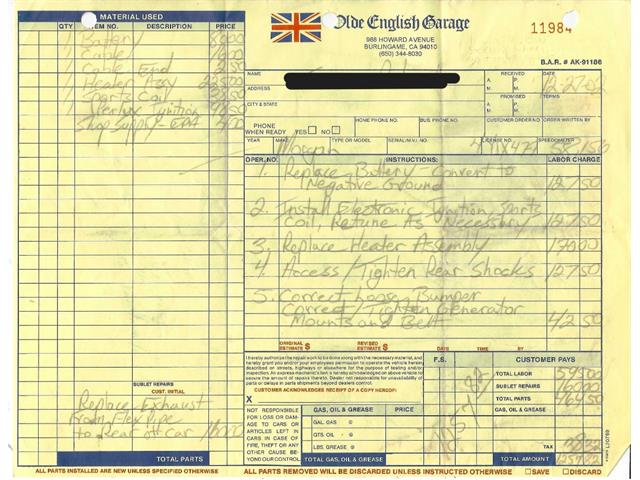 MATERIAL USED
QTY ITEM NO. DESCRIPTION PRICE
1 Battery
1 Cable
1 Cable End
1 Heater Assy
1 Sports Coil
1 Ignition
Shop Supply - EPA
SUBLET REPAIRS
COST. INITIAL
Replace Exhaust
From Flex Pipe
to Rear of car 160 00
TOTAL PARTS
Olde English Garage
988 HOWARD AVENUE
BURLINGAME, CA 94010
(650) 344-8030
11984
B.A.R. # AK-91186
NAME
RECEIVED A. M. P. M.
DATE 12-27-02
ADDRESS
CITY & STATE
PROMISED A. M. P. M.
TERMS
PHONE WHEN READY YES NO
HOME PHONE NO. BUS. PHONE NO. CUSTOMER ORDER NO. ORDER WRITTEN BY
YEAR MAKE TYPE OR MODEL SERIAL/M.V.I. NO. LICENSE NO. SPEEDOMETER
Morgan
OPER.NO. INSTRUCTIONS: LABOR CHARGE
1. Replace Battery - Convert to
Negative Ground 127 50
2. Install Electronic Ignition, Sports
Coil, Retune As Necessary 127 50
3. Replace Heater Assembly
4. Access / Tighten Rear Shocks 127 50
5. Correct Loose Bumper
Correct / Tighten Generator
Mounts and Belt 42 50
ORIGINAL ESTIMATE $ REVISED ESTIMATE $ DATE TIME BY
I hereby authorize the repair work to be done along with the necessary material, and
grant you and/or your employees permission to operate the vehicle herein
described on streets, highways or elsewhere for the purpose of testing and/or
inspection. An express mechanic's lien is hereby acknowledged on above vehicle to
secure the amount of repairs thereto. Dealer not responsible for unavailability of
parts or delays in parts shipments beyond dealers control.
CUSTOMER ACKNOWLEDGES RECEIPT OF A COPY HEREOF.
X
NOT RESPONSIBLE
FOR LOSS OR DAMAGE
TO CARS OR
ARTICLES LEFT IN
CARS IN CASE OF
FIRE, THEFT OR ANY
OTHER CAUSE BEYOND
OUR CONTROL
GAS, OIL & GREASE PRICE
GAL. GAS @
QTS. OIL @
LBS. GREASE @
TOTAL GAS, OIL & GREASE
CUSTOMER PAYS
TOTAL LABOR
SUBLET REPAIRS 160 00
TOTAL PARTS
GAS, OIL & GREASE
TAX
TOTAL AMOUNT
ALL PARTS INSTALLED ARE NEW UNLESS SPECIFIED OTHERWISE
ALL PARTS REMOVED WILL BE DISCARDED UNLESS INSTRUCTED OTHERWISE
SAVE DISCARD